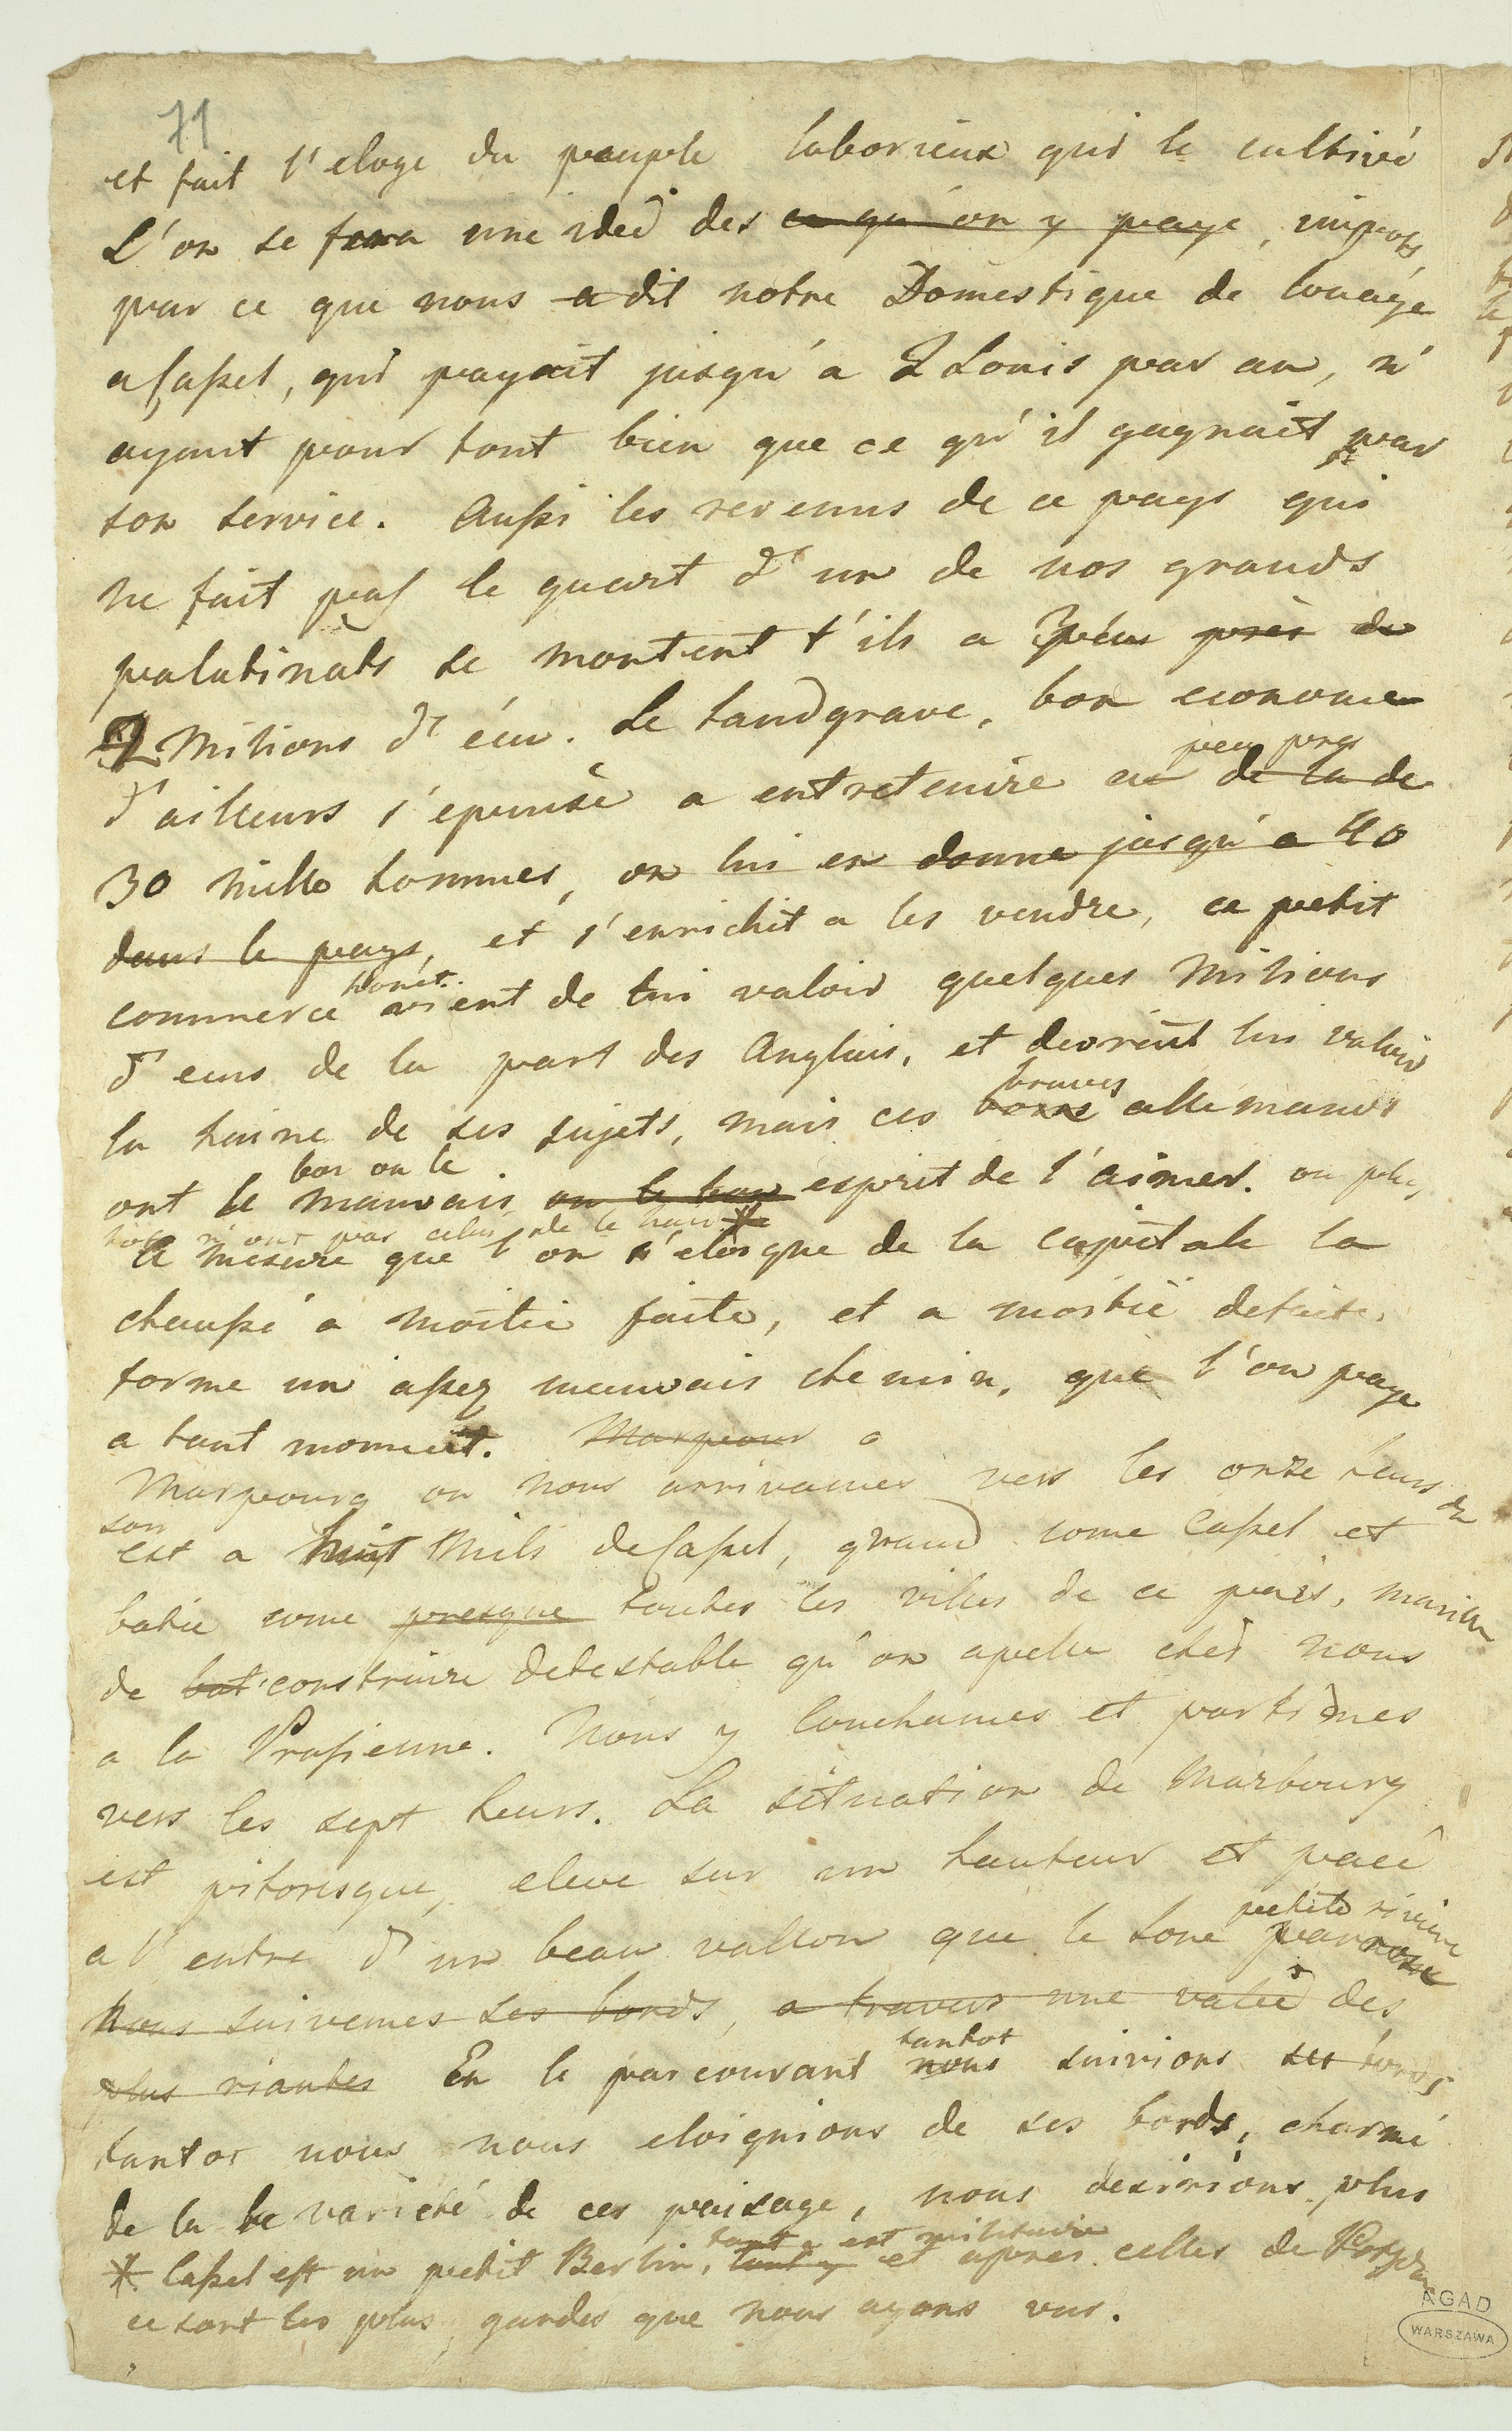 71
et fait l'eloge du peuple laborieux qui le cultivé
L'on se fera une ideé des ce qu'on y paye, impots,
par ce que nous a dit notre Domestique de louage
a Caßel, qui payait jusqu'a 2 Louis par an, n'
ayant pour tout bien que ce qu'il gagnait par
son service. Außi les revenus de ce pays qui
ne fait pas le quart d'un de nos grands
palatinats se montent t'ils a peu près de
2 Milions d'écu. Le Landgrave, bon econome
peu pres
d'ailleurs s'epuise a entretenire au de la de
30 mille hommes, on lui en donne jusqu'a 40
dans le pays, et s'enrichit a les vendre, ce petit
honêt
commerce vient de lui valoir quelques Milions
d'ecus de la part des Anglais, et devrait lui valoir
braves
la haine de ses sujets, mais ces bons allemands
bon ou le
ont le mauvais ou le bon esprit de l'aimer. ou plu
tôt n'ont pas celui de le hair *
A mesure que l'on s'eloigne de la capitale la
chaußé a moitié faite, et a moitié defaite,
forme un aßez mauvais chemin, que l'on paye
a tout moment. Marpour a
Marpourg ou nous arrivames vers les onze heurs du
soir
est a huit Mils de Caßel, grand come Caßel et
batie come presque toutes les villes de ce païs, manière
de bat construire detestable qu'on apelle chès nous
a la Prußienne. Nous y Couchames et partimes
vers les sept heurs. La situation de Marbourg
est pitoresque, eleve sur un hauteur et placé
petite riviere
a l'entre d'un beau vallon que le Lone
Nous suivemes ses bords, a travers une valeé des
plus riantes En le parcourant tantot nous suivions ses bords
tantot nous nous eloignions de ses bords, charmé
de la le varieté de ces paisage, nous desirions plus
* Caßel est un petit Berlin, tout y est militaire et apres celles de Potzdam
ce sont les plus gardes que nous ayons vus.
AGAD
WARSZAWA